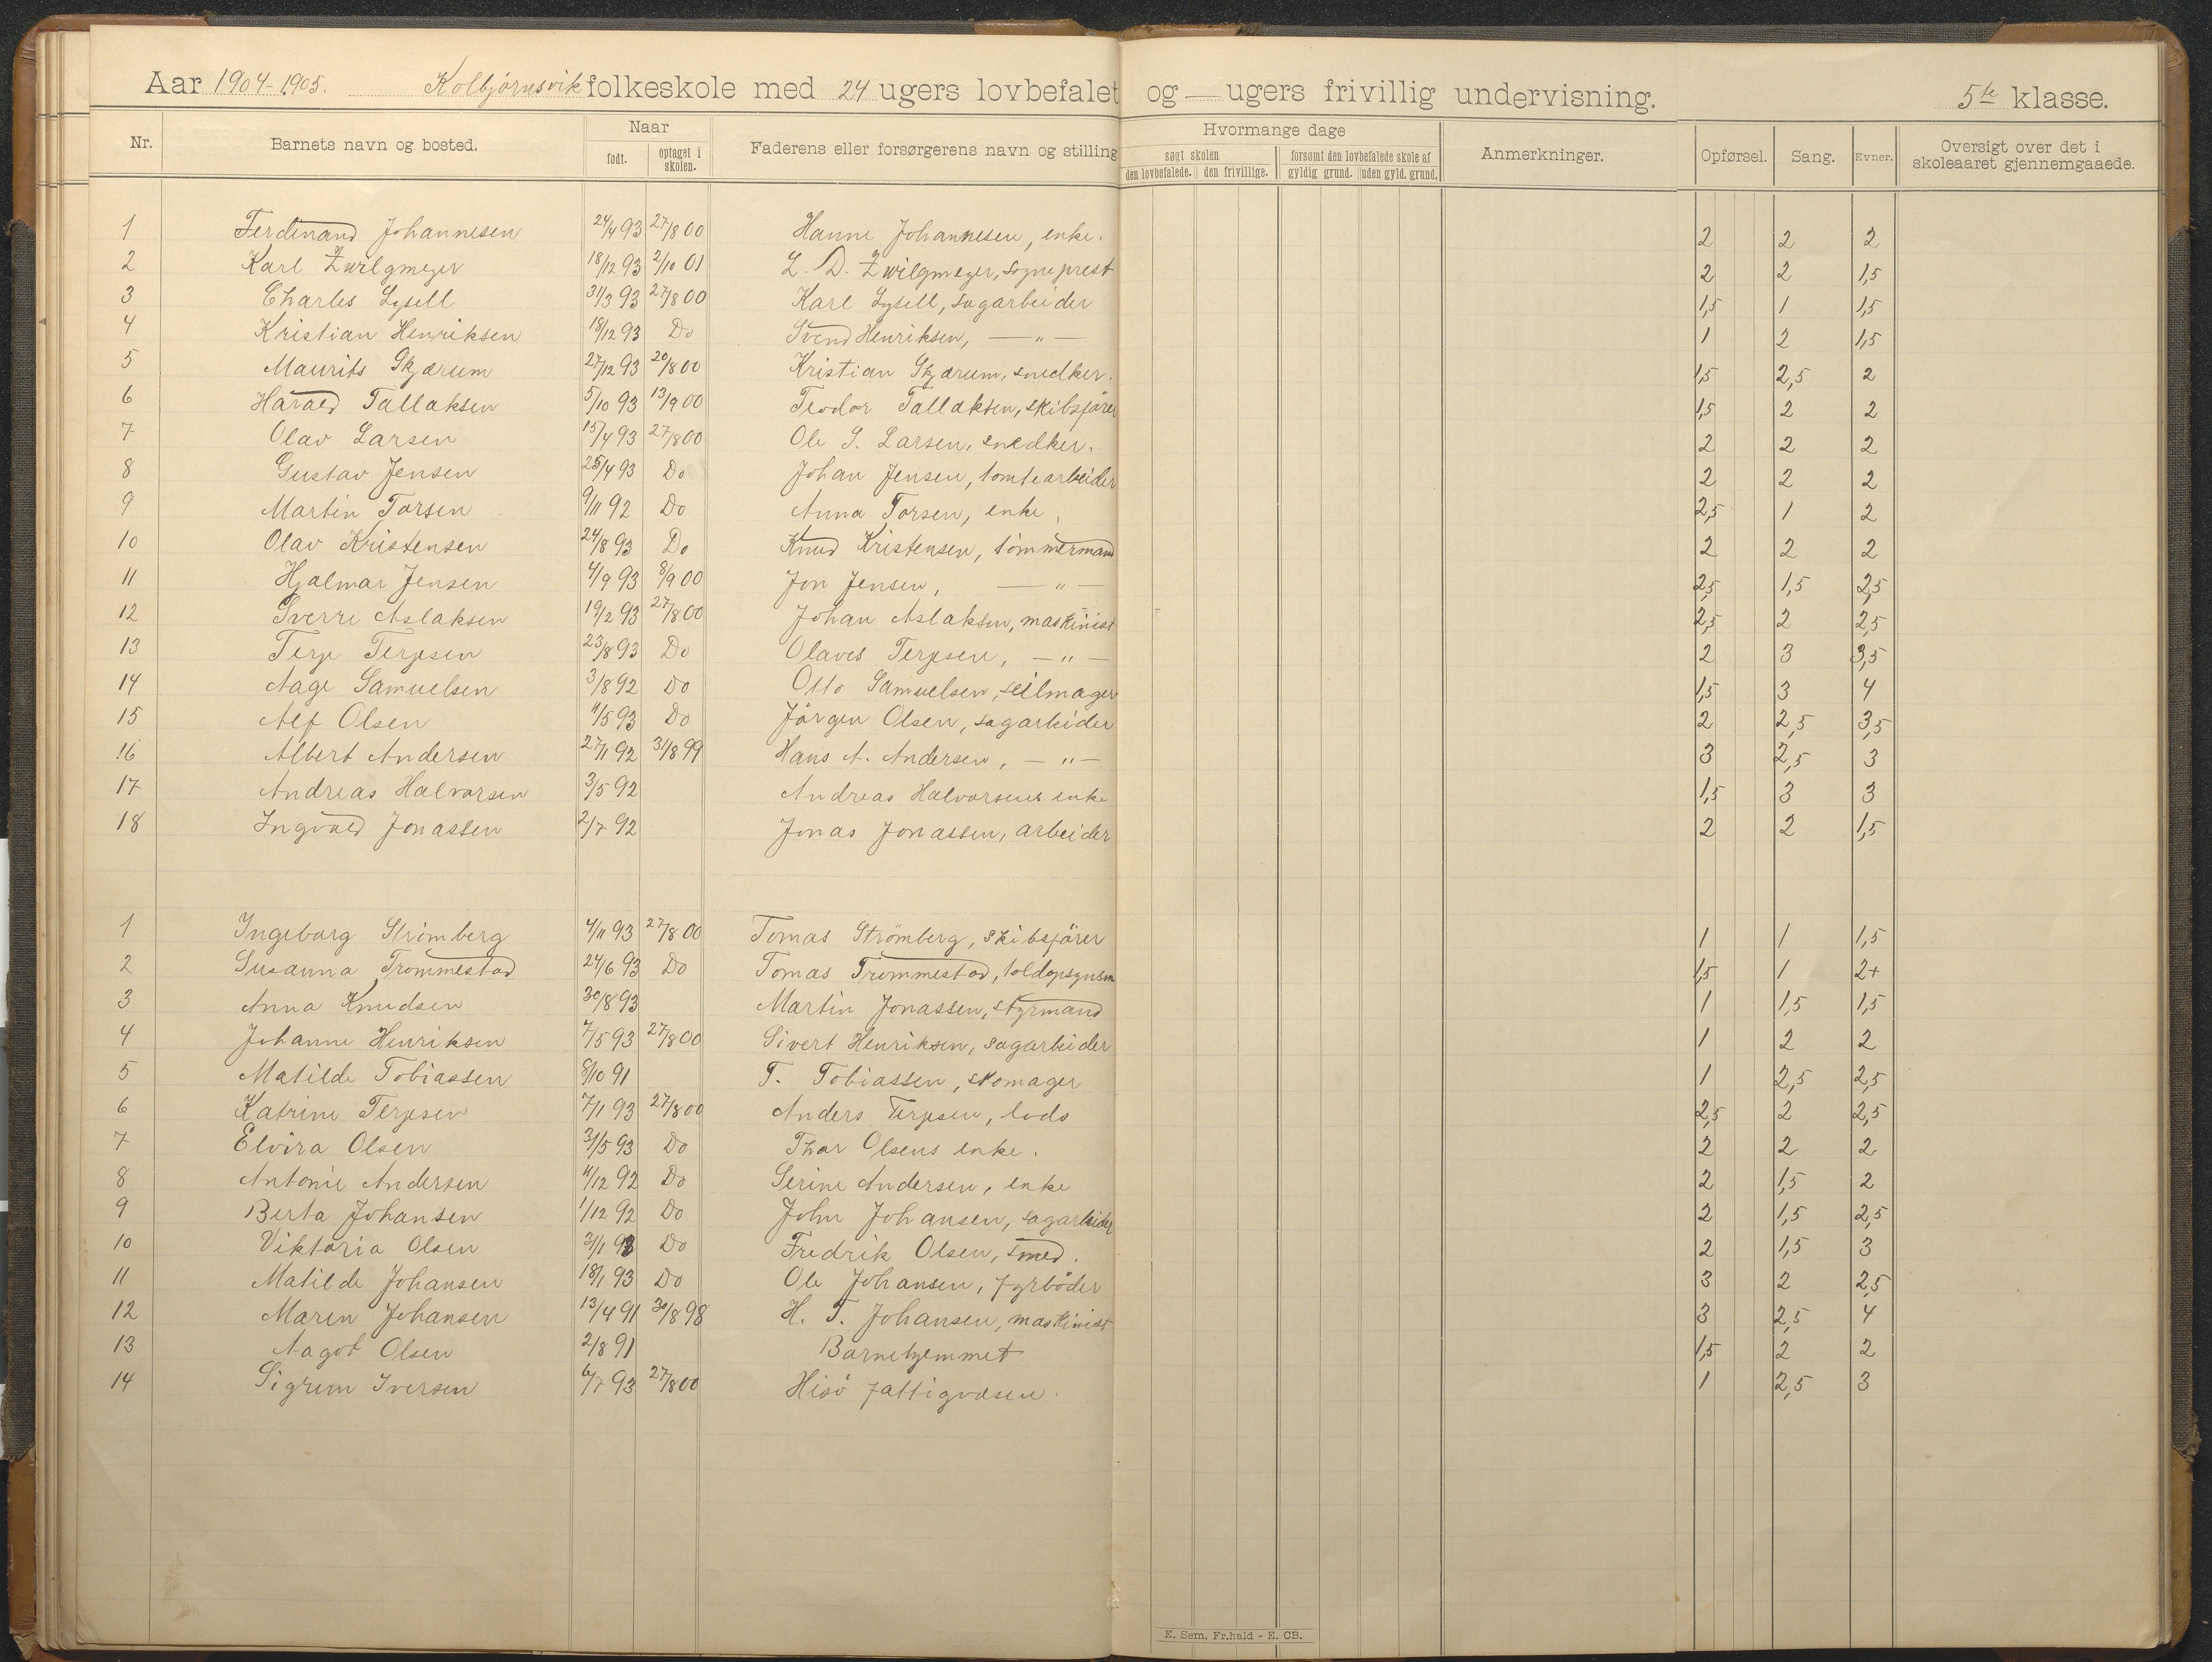 Aar 1904-1905. Kolbjørnsvik folkeskole med 24 ugers lovbefalet og — ugers frivillig undervisning. 5te klasse.
Nr. Barnets navn og bosted. Naar født. optaget i skolen. Faderens eller forsørgerens navn og stilling Hvormange dage søgt skolen den lovbefalede. den frivillige. forsømt den lovbefalede skole af gyldig grund. uden gyld. grund. Anmerkninger. Opførsel. Sang. Evner. Oversigt over det i skoleaaret gjennemgaaede.
1 Ferdinand Johannesen 24/4 93 27/8 00 Hanne Johannesen, enke. 2 2 2
2 Karl Zwilgmeyer 18/12 93 2/10 01 L. D. Zwilgmeyer, sogneprest 2 2 1,5
3 Charles Lysell 31/3 93 27/8 00 Karl Lysell, sagarbeider 1,5 1 1,5
4 Kristian Henriksen 18/12 93 Do Svend Henriksen, — " — 1 2 1,5
5 Maurits Skjærum 27/12 93 20/8 00 Kristian Skjærum, snedker. 1,5 2,5 2
6 Harald Tallaksen 5/10 93 13/9 00 Teodor Tallaksen, skibsfører 1,5 2 2
7 Olav Larsen 15/4 93 27/8 00 Ole S. Larsen, snedker. 2 2 2
8 Gustav Jensen 25/4 93 Do Johan Jensen, tomtearbeider 2 2 2
9 Martin Torsen 9/11 92 Do Anna Torsen, enke, 2,5 1 2
10 Olav Kristensen 24/8 93 Do Knud Kristensen, tømmermand 2 2 2
11 Hjalmar Jensen 4/9 93 8/9 00 Jon Jensen, — " — 2,5 1,5 2,5
12 Sverre Aslaksen 19/2 93 27/8 00 Johan Aslaksen, maskinist 2,5 2 2,5
13 Terje Terjesen 23/8 93 Do Olaves Terjesen, — " — 2 3 3,5
14 Aage Samuelsen 3/8 92 Do Otto Samuelsen, seilmager 1,5 3 4
15 Alf Olsen 11/5 93 Do Jørgen Olsen, sagarbeider 2 2,5 3,5
16 Albert Andersen 27/1 92 31/8 99 Hans A. Andersen, — " — 3 2,5 3
17 Andreas Halvorsen 3/5 92 Andreas Halvorsens enke 1,5 3 3
18 Ingvald Jonassen 2/7 92 Jonas Jonassen, arbeider 2 2 1,5
1 Ingeborg Strømberg 4/11 93 27/8 00 Tomas Strømberg, skibsfører 1 1 1,5
2 Susanna Trommestad 24/6 93 Do Tomas Trommestad, toldopsynsm 1,5 1 2+
3 Anna Knudsen 30/8 93 Martin Jonassen, styrmand 1 1,5 1,5
4 Johanne Henriksen 7/5 93 27/8 00 Sivert Henriksen, sagarbeider 1 2 2
5 Matilde Tobiassen 8/10 91 T. Tobiassen, skomager 1 2,5 2,5
6 Katrine Terjesen 7/1 93 27/8 00 Anders Terjesen, lods 2,5 2 2,5
7 Elvira Olsen 31/5 93 Do Thor Olsens enke. 2 2 2
8 Antonie Andersen 11/12 92 Do Serine Andersen, enke 2 1,5 2
9 Berta Johansen 1/12 92 Do John Johansen, sagarbeider 2 1,5 2,5
10 Viktoria Olsen 31/1 93 Do Fredrik Olsen, smed. 2 1,5 3
11 Matilde Johansen 18/1 93 Do Ole Johansen, fyrbøder 3 2 2,5
12 Maren Johansen 13/4 91 30/8 98 H. T. Johansen, maskinist 3 2,5 4
13 Aagot Olsen 2/8 91 Barnehjemmet 1,5 2 2
14 Sigrun Iversen 6/7 93 27/8 00 Hisø fattigvæsen. 1 2,5 3
E. Sem, Fr.hald - E. CB.